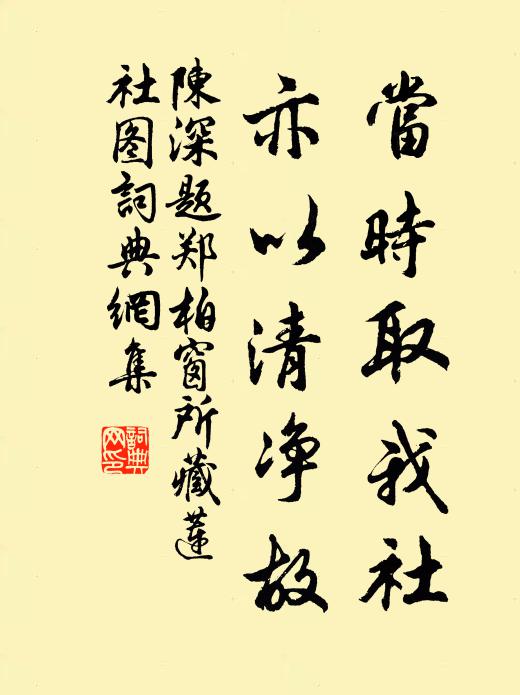 當時取我社
亦以清净故
陳深題郑柏窗所藏蓮
社图詞典網集
詞典
网印